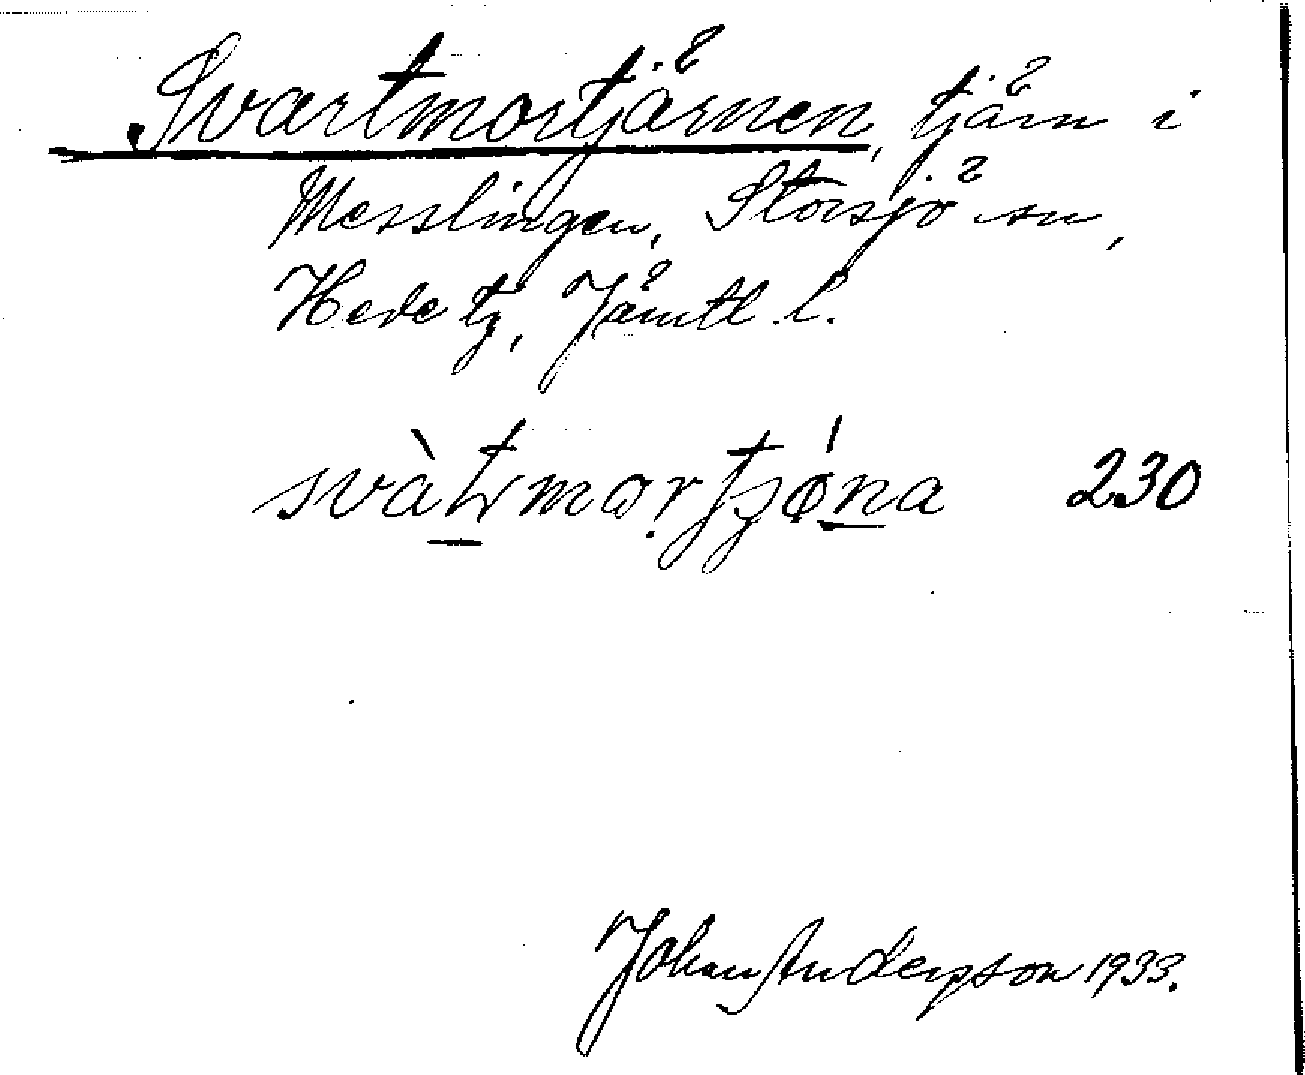 Svartmortjärnen, tjärn i
Messlingen, Storsjö sn,
Hede tg, Jämtl. l.
230
Johan Andersson 1933.